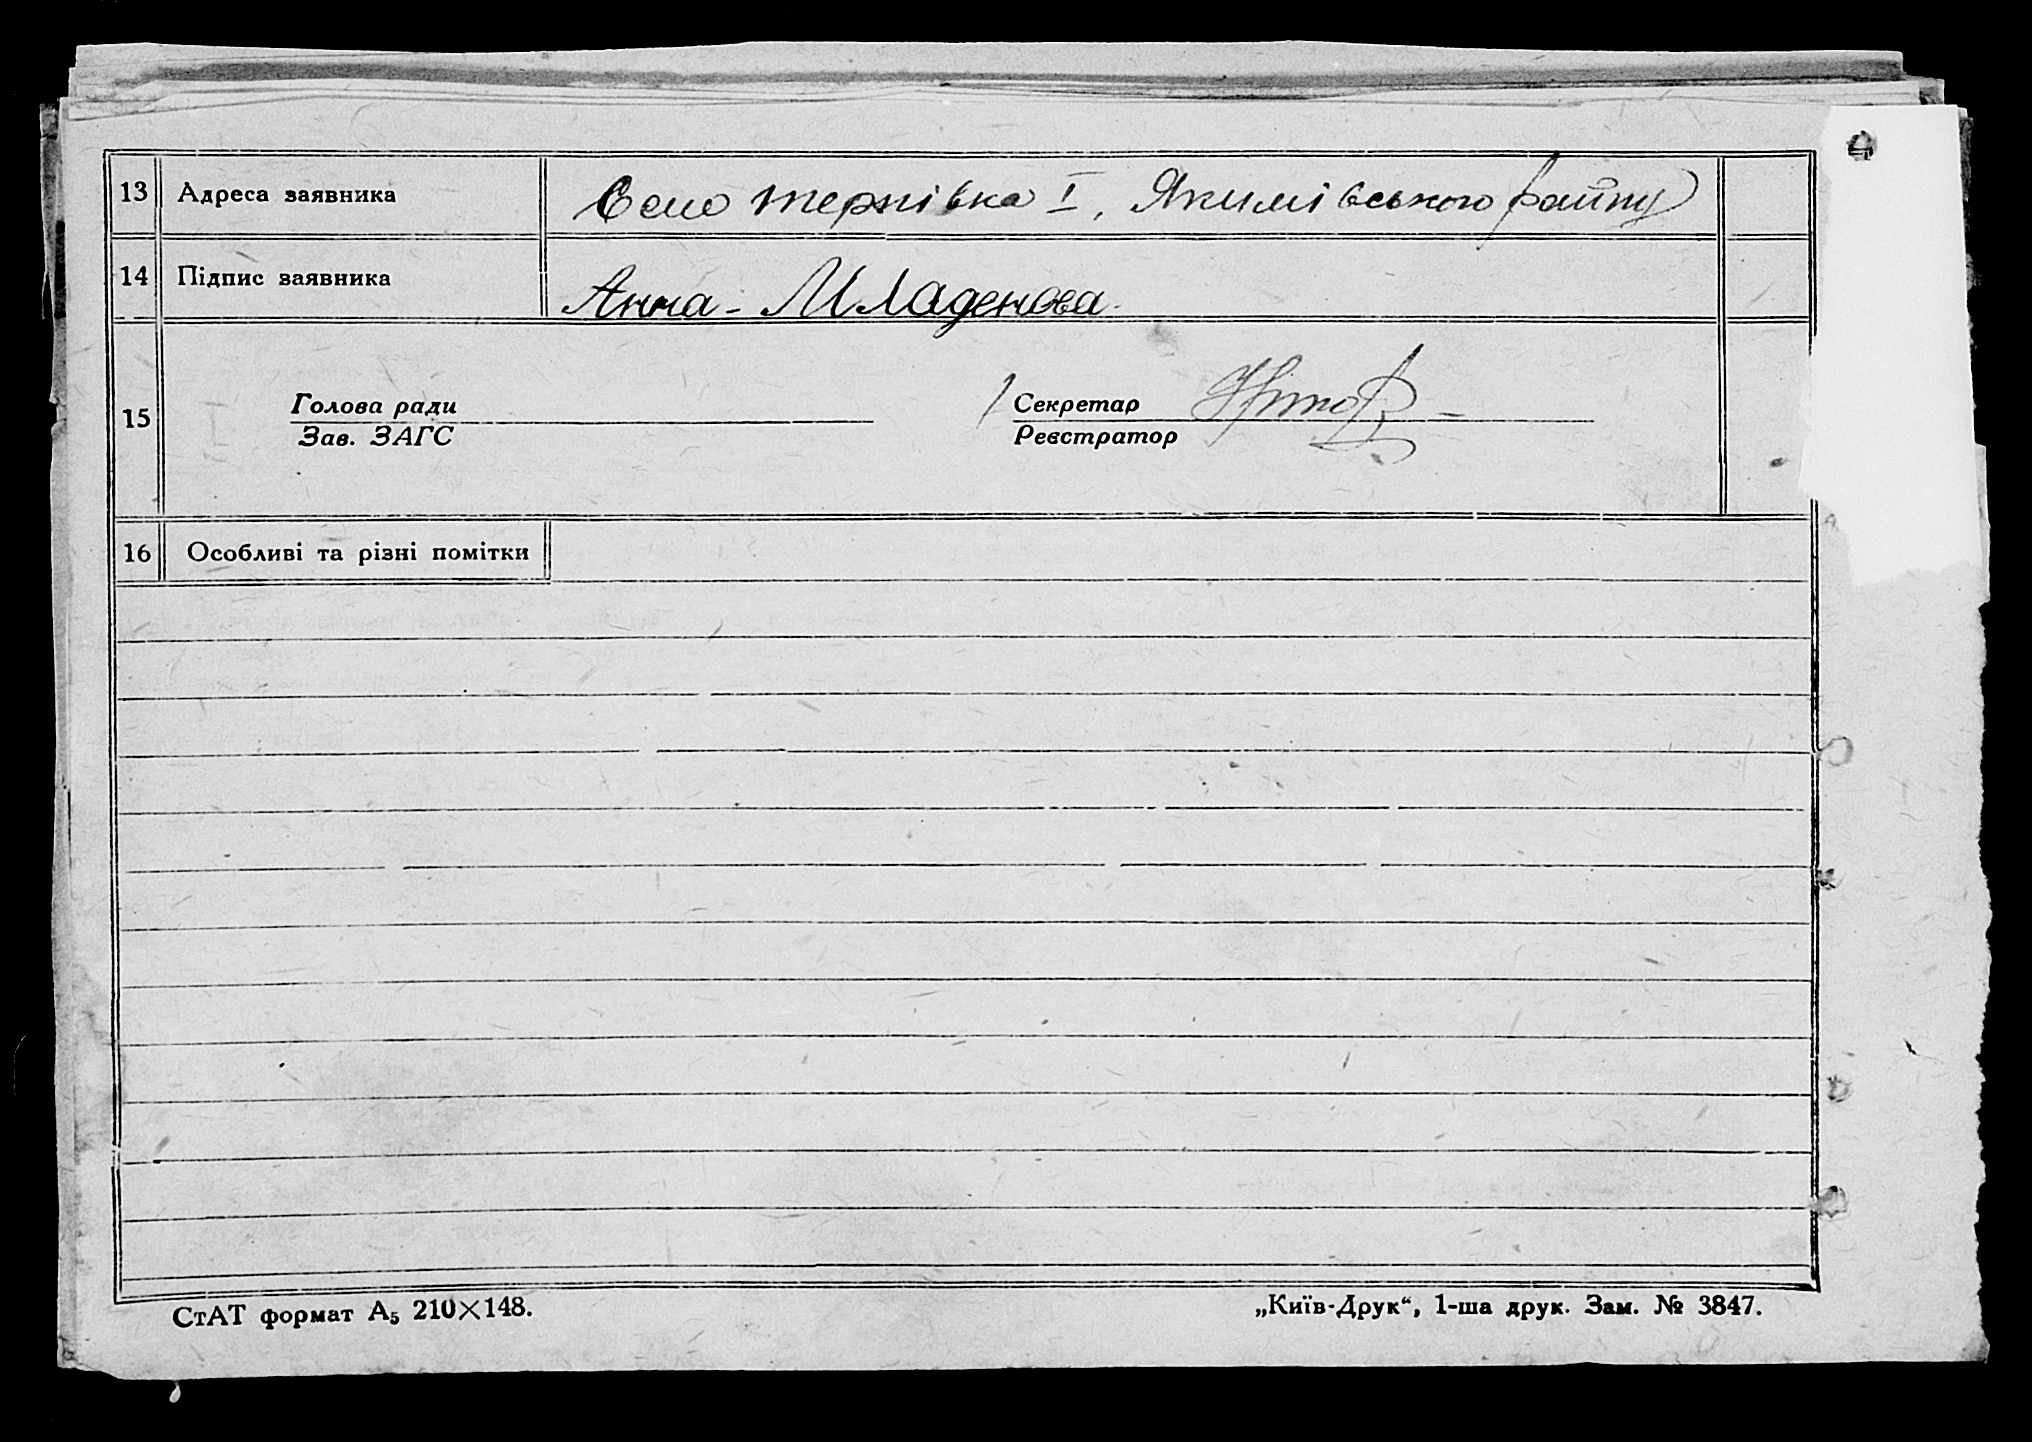 13 Адреса заявника Село Тернівка I, Якимівського району
14 Підпис заявника Анна - Младенова
15 Голова ради Секретар
Зав. ЗАГС Реєстратор
16 Особливі та різні помітки
СтАТ формат А5 210×148. „Київ-Друк“, 1-ша друк. Зам. № 3847.